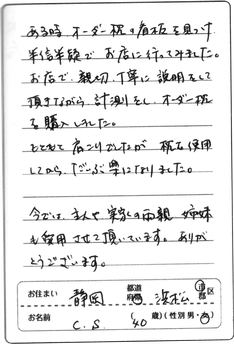 ある時 オーダー枕の看板を見つけ
半信半疑でお店に行ってみました。
お店で、親切、丁寧に説明をして
頂きながら、計測をし、オーダー枕
を購入しました。
とても肩こりでしたが 枕を使用
してから、だいぶ楽になりました。
今では、主人や実家の両親、姉妹
も愛用させて頂いています。ありが
とうございます。
お住まい 静岡 都道府県 浜松 市郡区
お名前 C.S. (40歳)(性別 男・女)